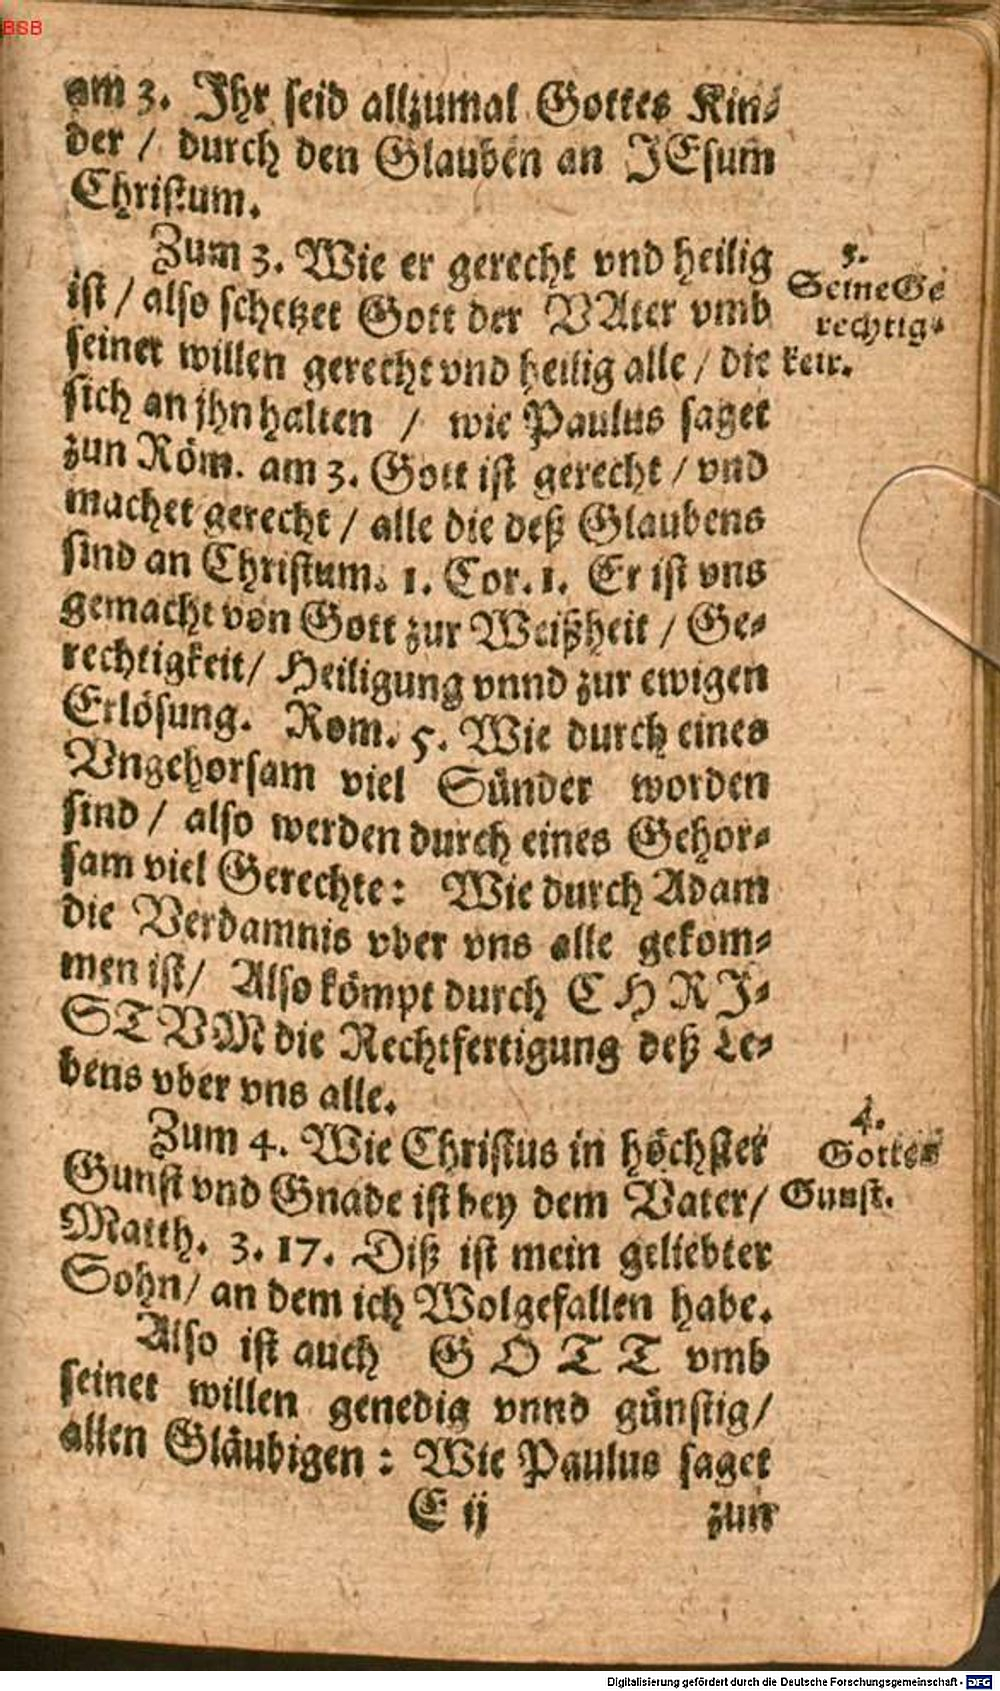 BSB
am 3. Ihr seid allzumal Gottes Kin-
der / durch den Glauben an JEsum
Christum.
Zum 3. Wie er gerecht vnd heilig
ist / also schetzet Gott der VAter vmb
seinet willen gerecht vnd heilig alle / die
sich an jhn halten / wie Paulus saget
zun Röm. am 3. Gott ist gerecht / vnd
machet gerecht / alle die deß Glaubens
sind an Christum. 1. Cor. 1. Er ist vns
gemacht von Gott zur Weißheit / Ge-
rechtigkeit / Heiligung vnnd zur ewigen
Erlösung. Rom. 5. Wie durch eines
Vngehorsam viel Sünder worden
sind / also werden durch eines Gehor-
sam viel Gerechte: Wie durch Adam
die Verdamnis vber vns alle gekom-
men ist / Also kömpt durch CHRJ-
STVM die Rechtfertigung deß Le-
bens vber vns alle.
Zum 4. Wie Christus in höchster
Gunst vnd Gnade ist bey dem Vater /
Matth. 3. 17. Diß ist mein geliebter
Sohn / an dem ich Wolgefallen habe.
Also ist auch GOTT vmb
seinet willen genedig vnnd günstig /
allen Gläubigen: Wie Paulus saget
E ij
zun
3.
Seine Ge
rechtig-
keit.
4.
Gottes
Gunst.
Digitalisierung gefördert durch die Deutsche Forschungsgemeinschaft - DFG